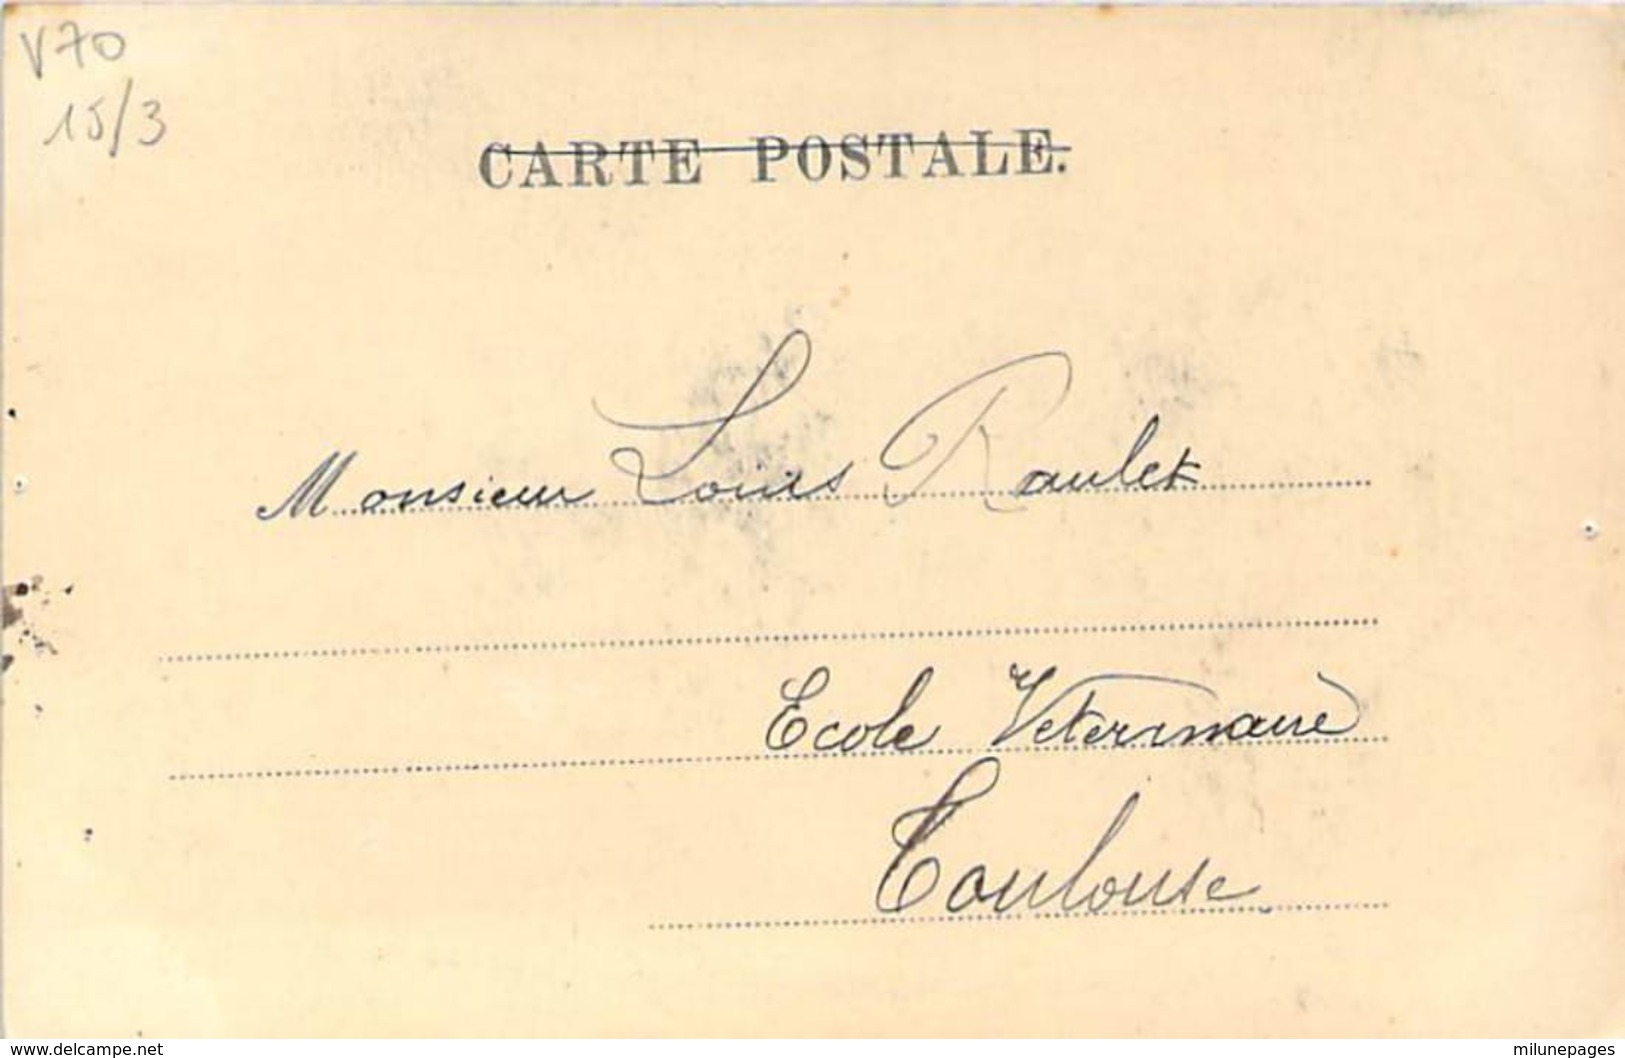 V70
15/3
CARTE POSTALE.
Monsieur Louis Raulet
Ecole Veterinaire
Toulouse
www.delcampe.net
milunepages